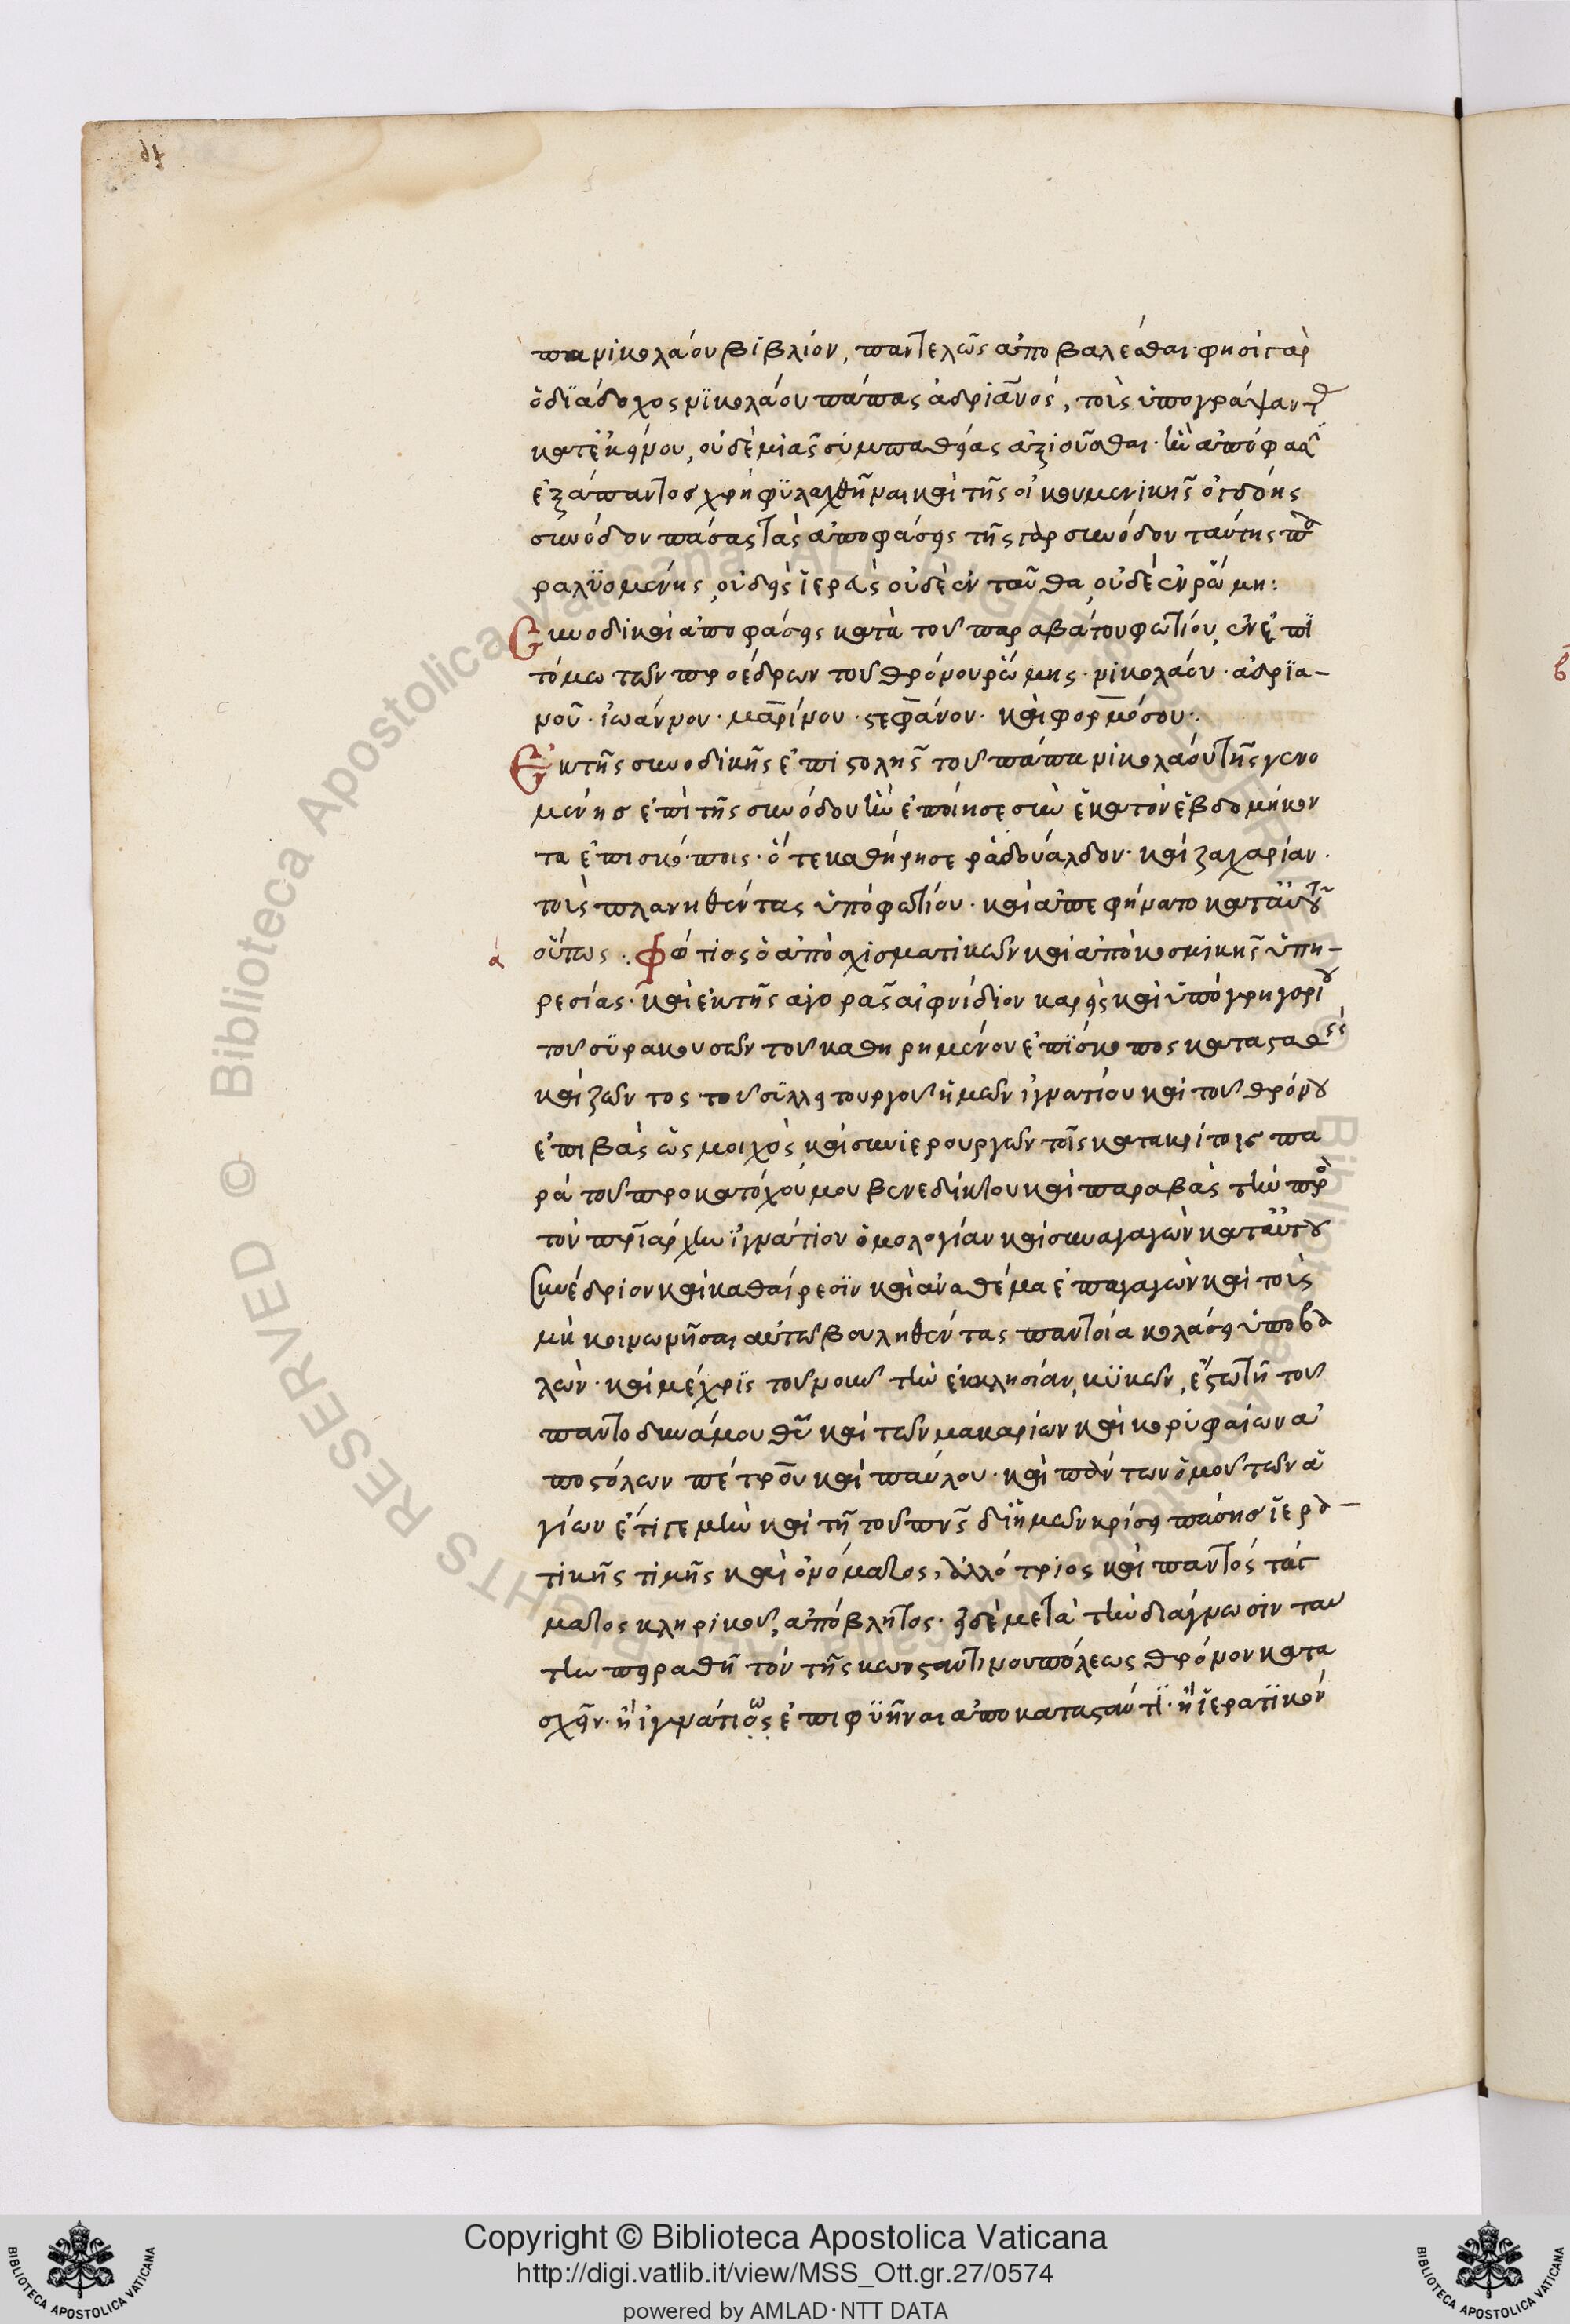 πα νικολάου βιβλίον, παντελῶς ἀποβαλέσθαι· φησὶ γὰρ
ὁ διάδοχος νικολάου πάπας ἀδριανός, τοὺς ὑπογράψαντ
κατ' ἐκείνου, οὐδὲ μιᾶς συμπαθείας ἀξιοῦσθαι· ἣν ἀπόφασ
ἐξάπαντος χρὴ φυλαχθῆναι καὶ τῆς οἰκουμενικῆς ὀγδόης
συνόδου πάσας τὰς ἀποφάσεις τῆς γὰρ συνόδου ταύτης πα
ραλυομένης, οὐδεὶς ἱερεὺς οὐδὲ ἐνταῦθα, οὐδὲ ἐν ῥώμη:
Συνοδικαὶ ἀποφάσεις κατὰ τοῦ παραβάτου φωτίου, ἐν ἐπι
τόμω τῶν προέδρων τοῦ θρόνου ῥώμης· νικολάου· ἀδρια–
νοῦ· ἰωάννου· μαρίνου· στεφάνου· καὶ φορμόσου:
Ἐκ τῆς συνοδικῆς ἐπιστολῆς τοῦ πάπα νικολάου τῆς γενο
μένης ἐπὶ τῆς συνόδου ἣν ἐποίησε σὺν ἑκατὸν ἑβδομήκον
τα ἐπισκόποις· ὅτε καθήρησε ῥαδουάλδον· καὶ ζαχαρίαν·
τοὺς πλανηθέντας ὑπὸ φωτίου· καὶ ἀπεφήνατο κατ' αὐτοῦ
οὕτως:. Φώτιος ὁ ἀπὸ σχισματικῶν καὶ ἀπὸ κοσμικῆς ὑπη–
α
ρεσίας· καὶ ἐκ τῆς ἀγορᾶς αἰφνίδιον καρεὶς καὶ ὑπὸ γρηγορίου
τοῦ συρακουσῶν τοῦ καθηρημένου ἐπίσκοπος καταστὰς
καὶ ζῶντος τοῦ συλλειτουργοῦ ἡμῶν ἰγνατίου καὶ τοῦ θρόνου
ἐπιβὰς ὡς μοιχὸς, καὶ συνιερουργῶν τοῖς κατακρίτοις πα
ρὰ τοῦ προκατόχου μου βενεδίκτου καὶ παραβὰς τὴν πρὸ
τὸν πριάρχην ἰγνάτιον ὁμολογίαν καὶ συναγαγὼν κατ' αὐτοῦ
συνέδριον καὶ καθαίρεσιν καὶ ἀναθέμα ἐπαγαγὼν καὶ τοὺς
μὴ κοινωνῆσαι αὐτῶ βουληθέντας παντοία κολάσει ὑποβα
λών· καὶ μέχρις τοῦ νοῦν τὴν ἐκκλησίαν, κυκῶν, ἔστω τῆ τοῦ
παντοδυνάμου θυ καὶ τῶν μακαρίων καὶ κορυφαίων ἀ
ποστόλων πέτρου καὶ παύλου· καὶ πάντων ὁμοῦ τῶν ἁ
γίων ἔτι γε μὴν καὶ τῆ τοῦ πνς δι' ἡμῶν κρίσει πάσης ἱερα–
τικῆς τιμῆς καὶ ὀνόματος, ἀλλότριος καὶ παντός τάγ
ματος κληρικοῦ, ἀπόβλητος· εἰ δὲ μετὰ τὴν διάγνωσιν ταύ
την πειραθῆ τὸν τῆς κωνσταντινουπόλεως θρόνον κατα
σχεῖν· ἢ ἰγνάτιος ἐπιφυῆναι ἀποκαταστάντι· ἢ ἱερατικόν
Copyright © Biblioteca Apostolica Vaticana
http://digi.vatlib.it/view/MSS_Ott.gr.27/0574
powered by AMLAD·NTT DATA